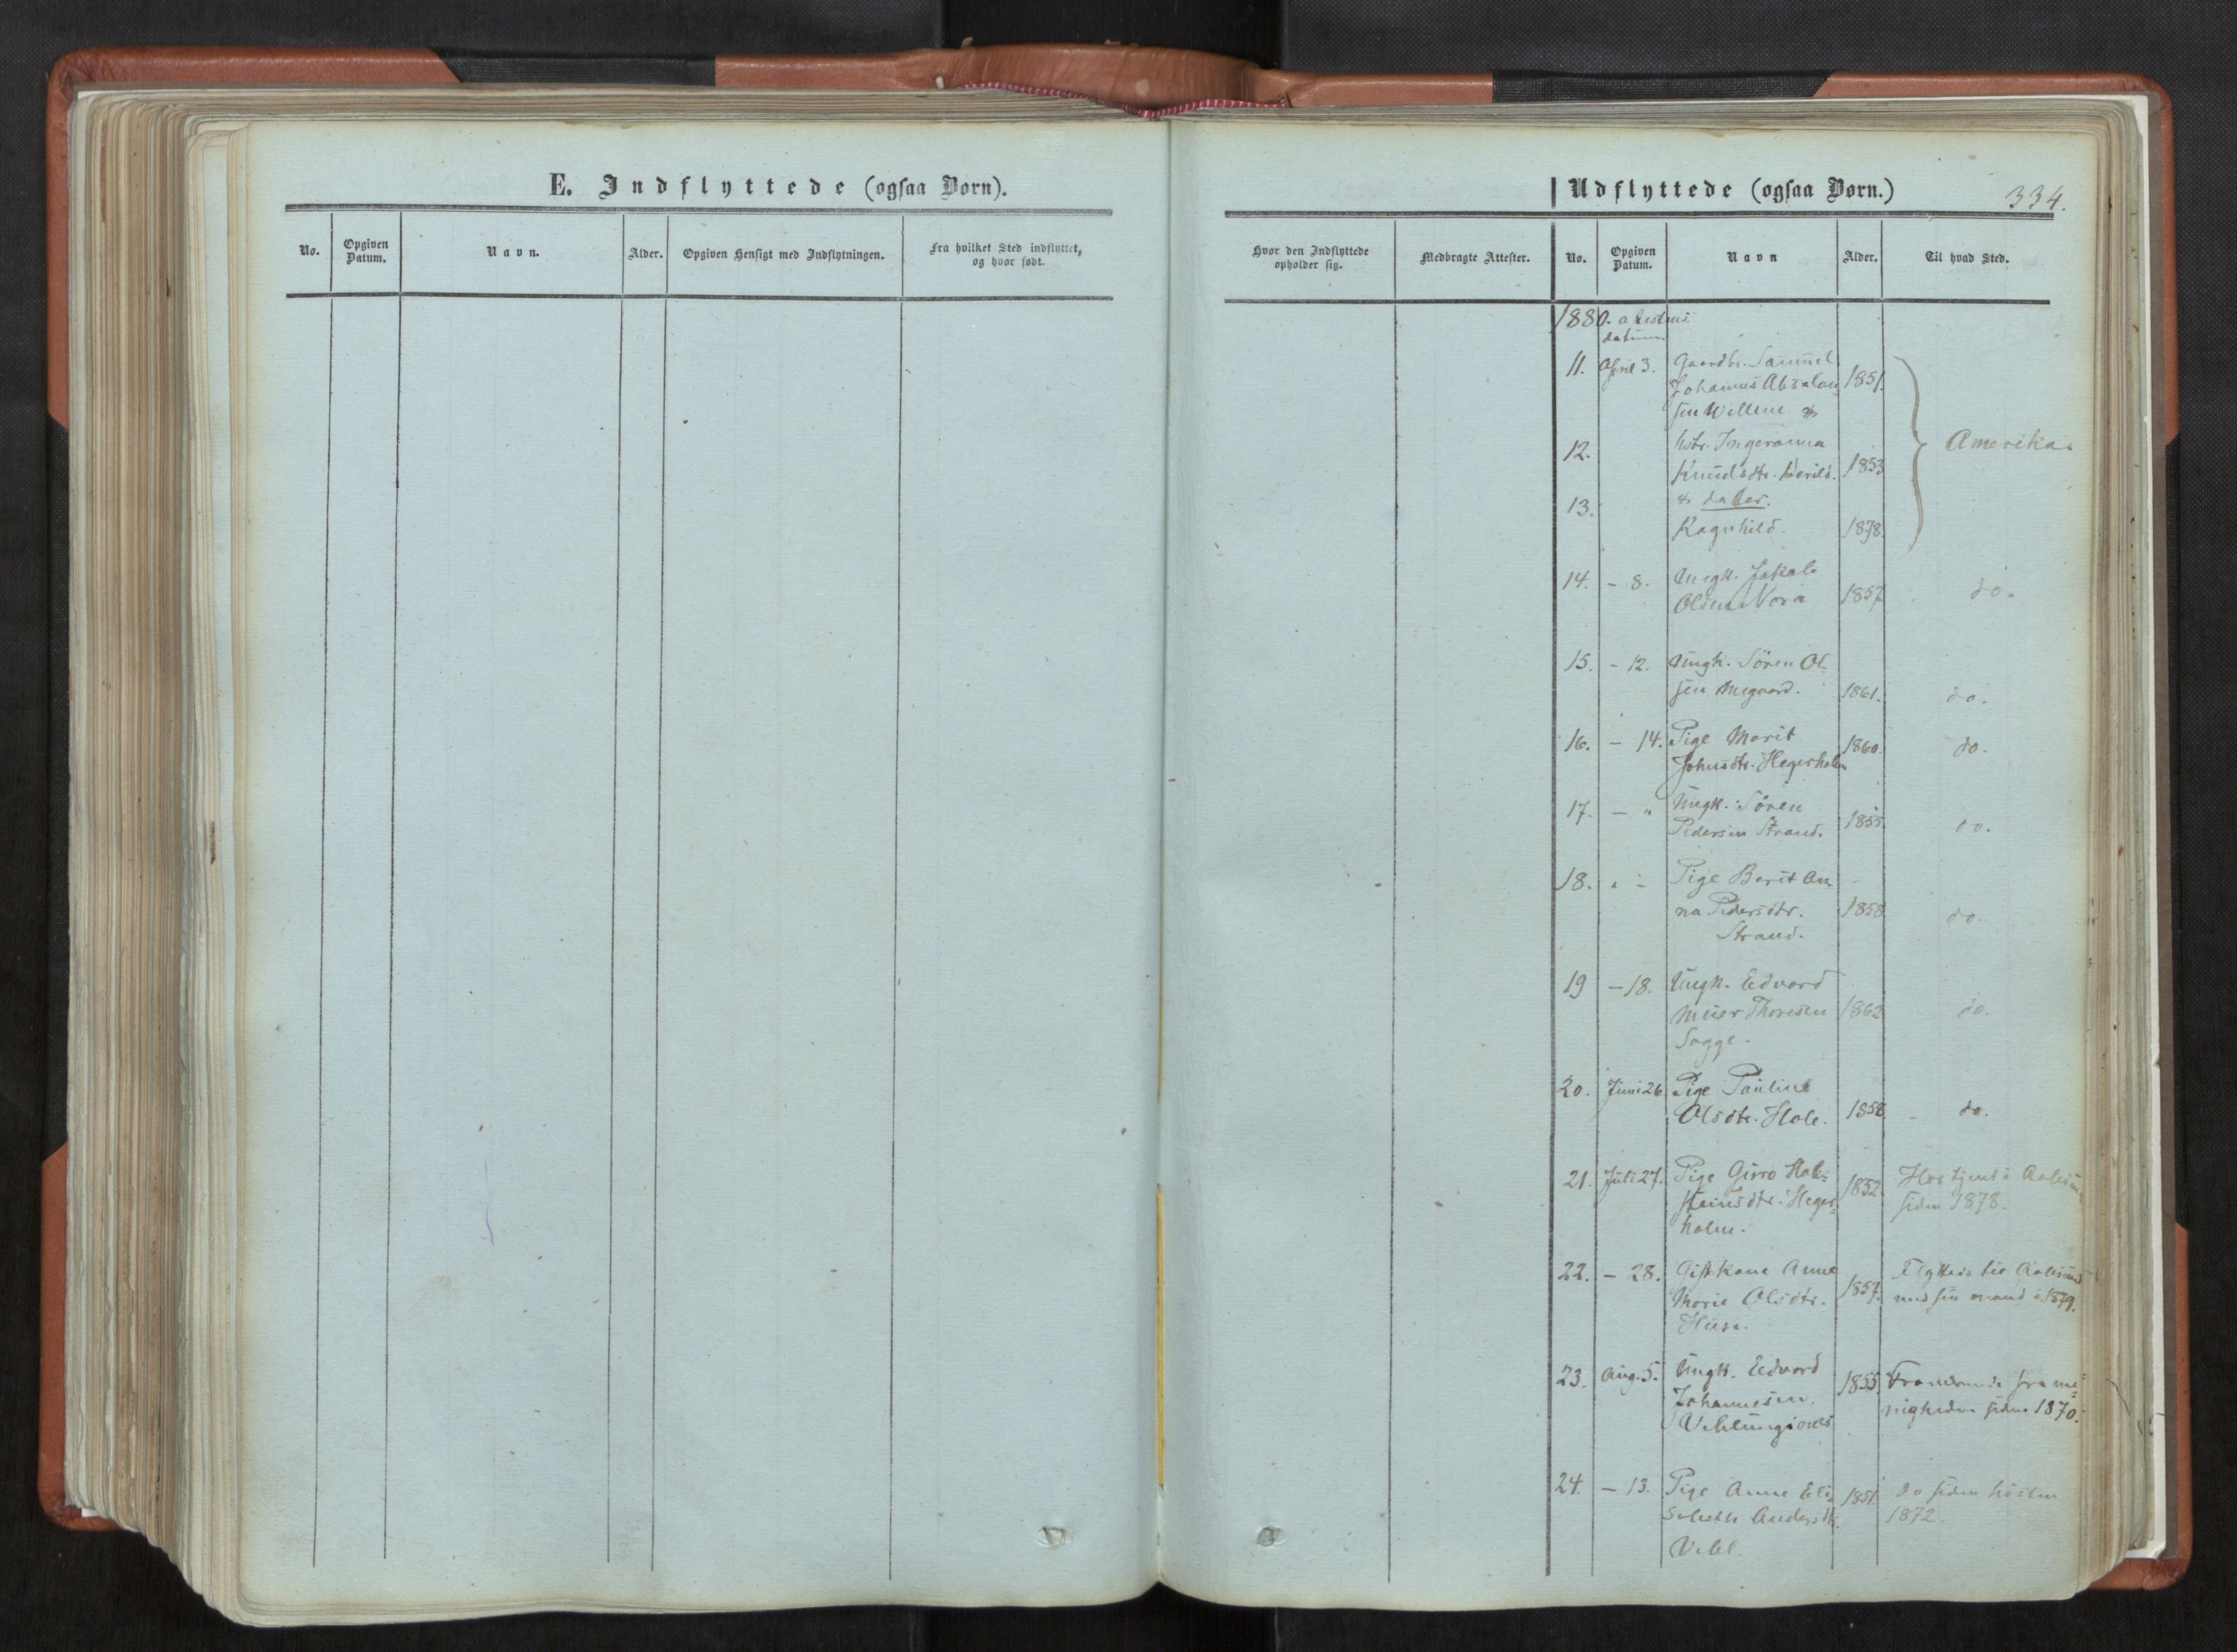 E. Indflyttede (ogsaa Børn).
No.
Opgiven
Datum.
Navn.
Alder.
Opgiven Hensigt med Indflytningen.
Fra hvilket Sted indflyttet,
og hvor født.
Udflyttede (ogsaa Børn.)
334.
Hvor den Indflyttede
opholder sig.
Medbragte Attester.
No.
Opgiven
Datum.
Navn
Alder.
Til hvad Sted.
1880. attestens
datum.
11. April 3. Gaardbr. Samuel
Johannes Absalon 1851.
sen Wellene &
Amerika.
12. hstr. Ingeranna
Knudsdtr. 1853
13. & datter.
Ragnhild. 1878
14. - 8. Ungk. Jakob
Olsen Vora 1857 do.
15. - 12. Ungk. Søren Ol-
sen Megaard. 1861. do.
16. - 14. Pige Marit 1860. do.
Johnsdtr. Hegerholm
17. - " Ungk. Søren
Pedersen Strand. 1855. do.
18. " - Pige Berit An-
na Pedersdtr. 1858 do.
Strand.
19 - 18. Ungk. Edvard
Thoresen 1862 do.
Sogge.
20. Juni 26 Pige Pauline
Olsdtr. Hole. 1858 do.
21. Juli 27. Pige Guro Hal- 1852. Har tjent i Aalesund
steinsdtr. Heger- siden 1878.
holm.
22. - 28. Gift Kone Anne Flyttede til Aalesund
Marie Olsdtr. 1857. med sin mand i 1879.
Husa.
23. Aug. 5. Ungk. Edvard 1855. Fraværende fra me-
Johannesen nigheden siden 1870.
Veblungsnes
24. - 13. Pige Anne Eli- 1851. do siden høsten
sabeth Andersdtr. 1872.
Vebl.